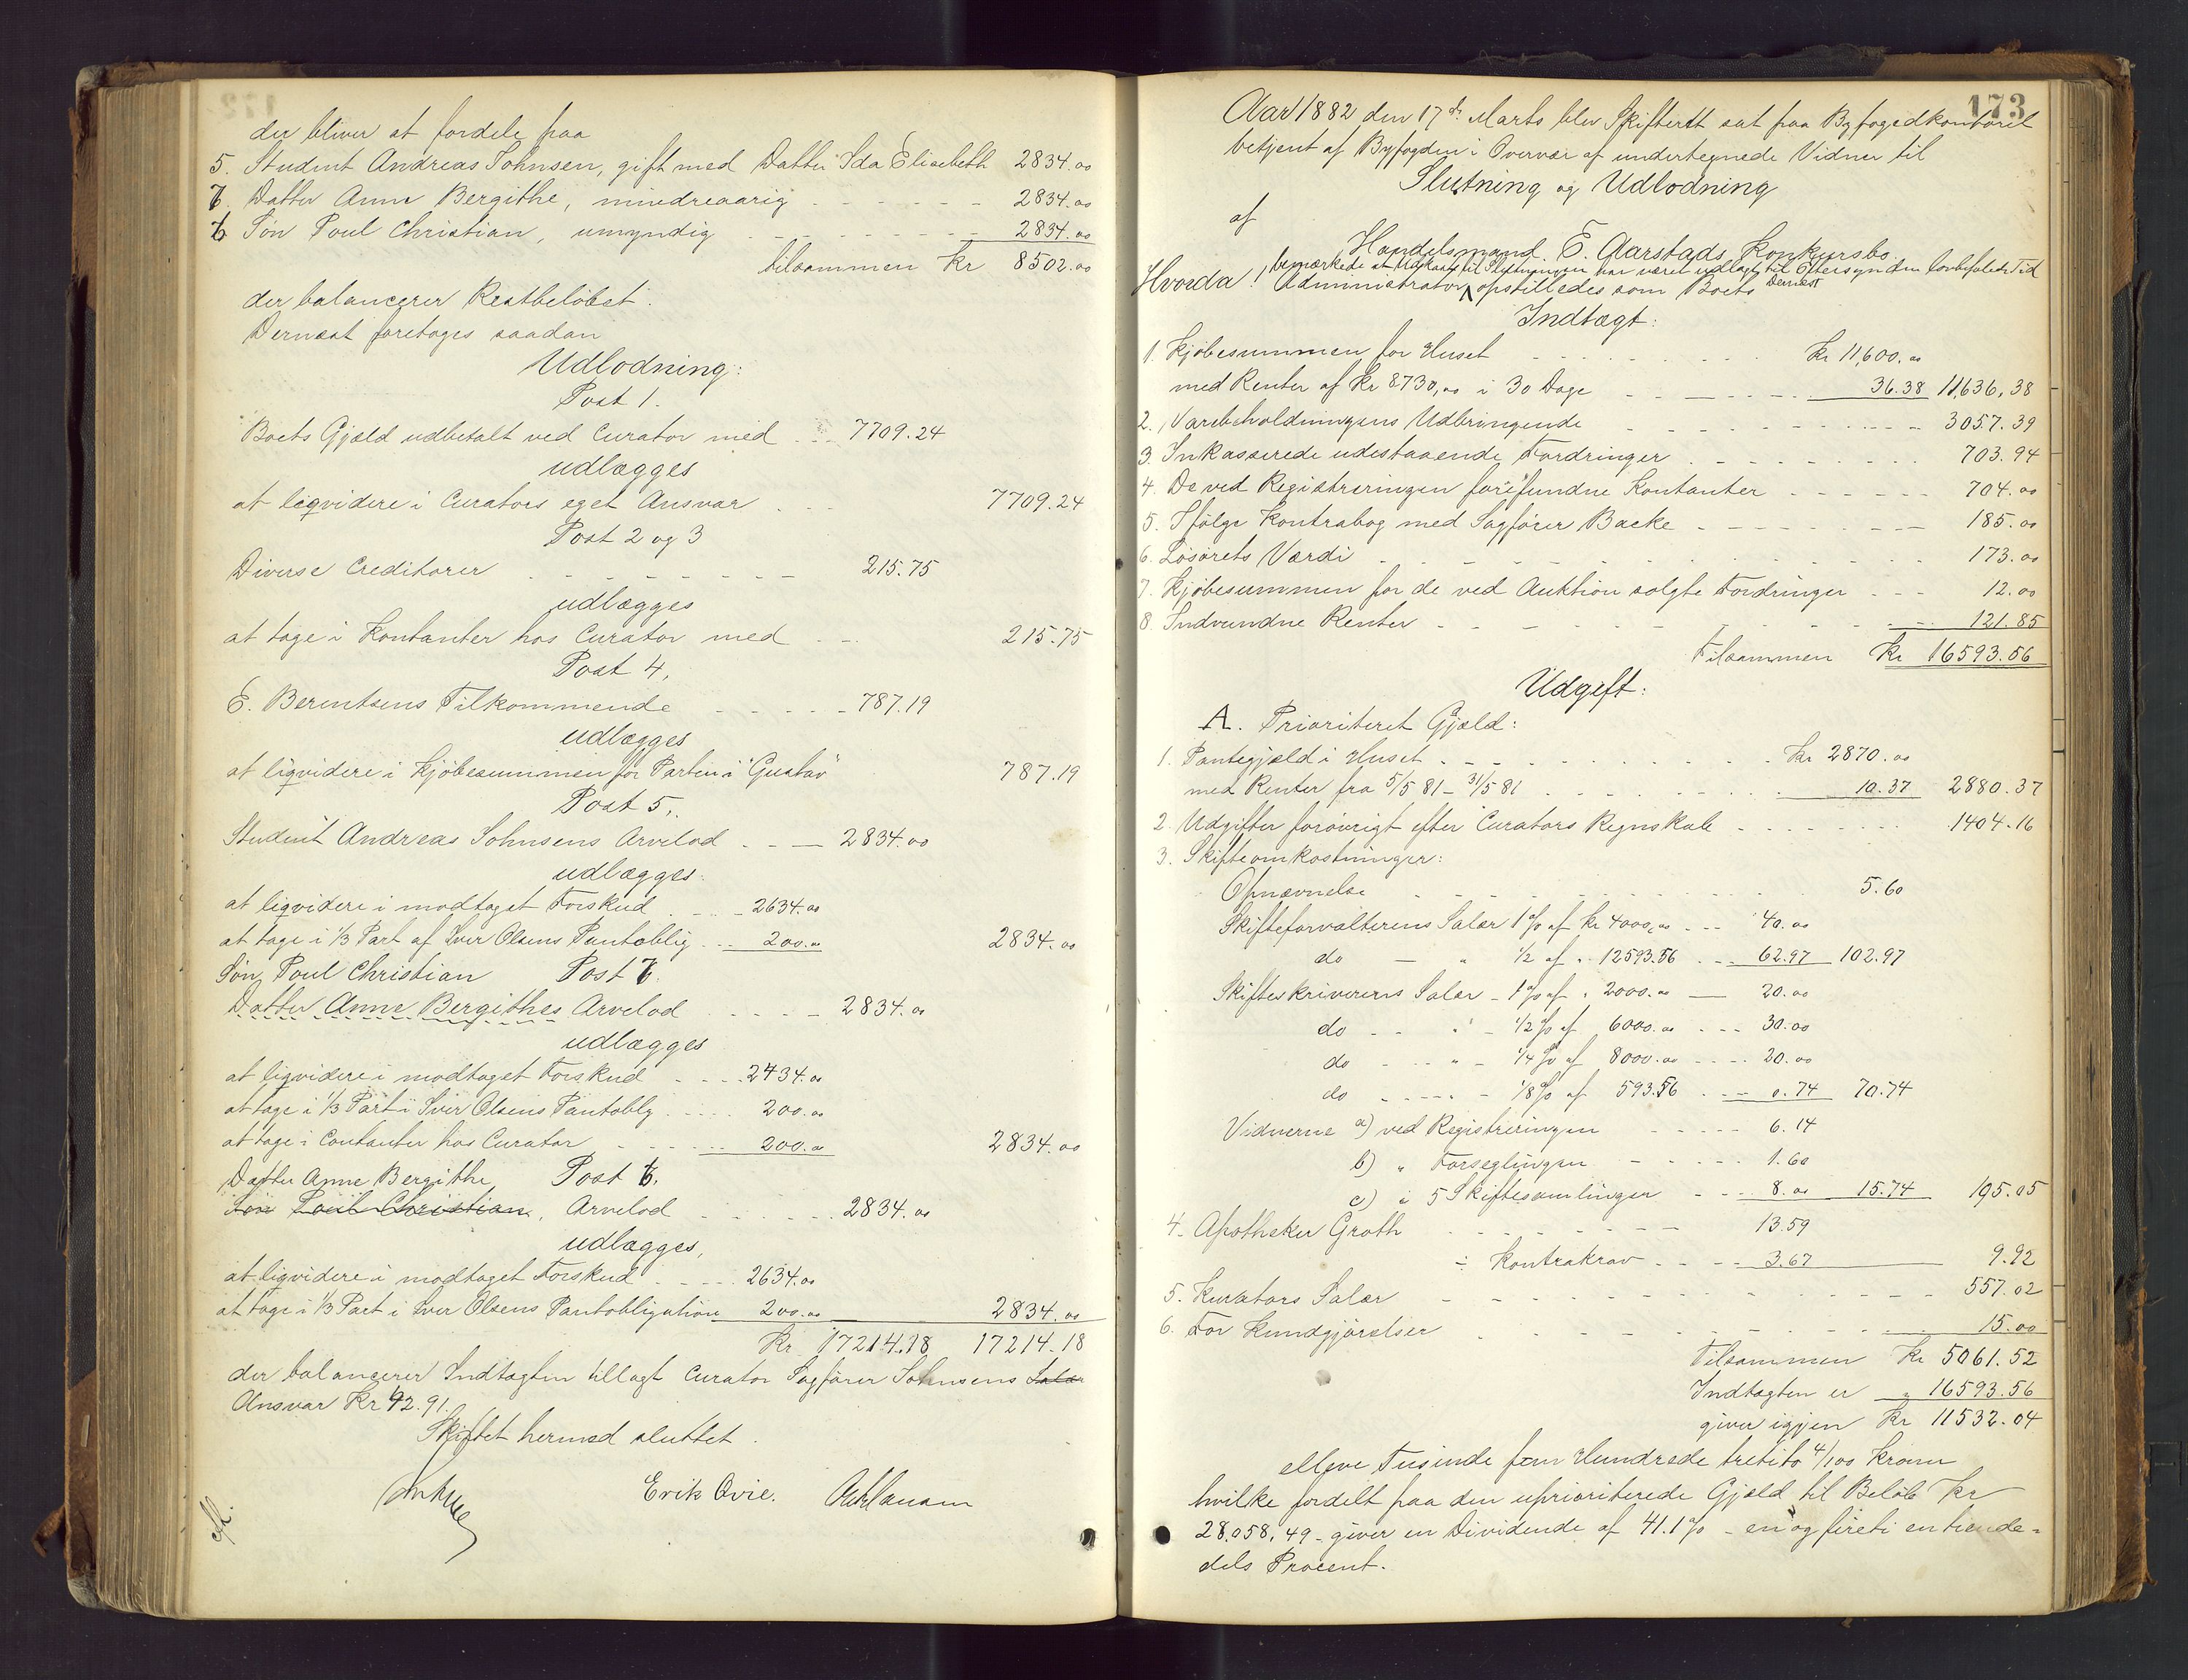 der bliver at fordele paa
5. Student Andreas Johnsen, gift med Datter Ida Elisabeth 2834.00
7. Datter Anne Bergithe, mindreaarig - - - - 2834.00
6 Søn Poul Christian, umyndig - - - - 2834.00
tilsammen Kr 8502.00
der balancerer Restbeløbet.
Dernæst foretages saadan
Udlodning:
Post 1.
Boets Gjæld udbetalt ved Curator med - - 7709.24
udlægges
at liqvidere i Curators eget Ansvar - - 7709.24
Post 2 og 3
Diverse Creditorer - - - - 215.75
udlægges
at tage i Kontanter hos Curator med - - 215.75
Post 4.
E. Berentsens Tilkommende - - - - 787.19
udlægges
at liqvidere i Kjøbesummen for Parten i "Gustav" 787.19
Post 5.
Student Andreas Johnsens Arvelod - - 2834.00
udlægges:
at liqvidere i modtaget Forskud - - 2634.00
at tage i 1/3 Part af Sver Olsens Pantoblig. - - 200.00 2834.00
Søn Poul Christian Post 6.
Datter Anne Bergithes Arvelod - - - - 2834.00
udlægges
at liqvidere i modtaget Forskud - - 2434.00
at tage i 1/3 Part i Sver Olsens Pantoblg - - 200.00
at tage i Contanter hos Curator - - 200.00 2834.00
Datter Anne Bergithe Post 7.
Søn Poul Christian, Arvelod - - - - 2834.00
udlægges,
at liqvidere i modtaget Forskud - - 2634.00
at tage i 1/3 Part i Sver Olsens Pantobligation 200.00 2834.00
Kr 17214.18 17214.18
der balancerer Indtægten tillagt Curator Sagfører Johnsens Salær
Ansvar Kr 92.91.
Skiftet hermed sluttet.
Erik Ovie.
173
Aar 1882 den 17de Marts blev Skifteret sat paa Byfogedkontoret
betjent af Byfogden i Overvær af undertegnede Vidner til
Slutning og Udlodning
af
Handelsmand E. Aarstads Konkursbo
bemærkede at Udkast til Slutningen har været udlagt til Eftersyn den lovbefalede Tid
Hvorda! Administrator opstilledes som Boets Dernæst
Indtægt:
1. Kjøbesummen for Huset - - - - Kr 11,600.00
med Renter af Kr 8730,00 i 30 Dage - - - - 36.38 11,636,38
2. Varebeholdningens Udbringende - - - - 3057.39
3. Inkasserede udestaaende Fordringer - - - - 703.94
4. De ved Registreringen forefundne Kontanter - - - - 704.00
5. Ifølge Kontrabog med Sagfører Backe - - - - 185.00
6. Løsørets Værdi - - - - 173.00
7. Kjøbesummen for de ved Auktion solgte Fordringer - - - 12.00
8. Indvundne Renter - - - - 121.85
Tilsammen Kr 16593.56
Udgift:
A. Prioriteret Gjæld:
1. Pantegjæld i Huset - - - - Kr 2870.00
med Renter fra 5/5 81 - 31/5 81 - - - - 10.37 2880.37
2. Udgifter forøvrigt efter Curators Regnskab - - - - 1404.16
3. Skifteomkostninger:
Opnævnelse - - - - 5.60
Skifteforvalterens Salær 1 % af Kr 4000,00 - - - 40.00
do - " 1/2 af " 12593.56 - - - 62.97 102.97
Skifteskriverens Salær - 1 % af " 2000.00 - 20.00
do - - " - 1/2 % af 6000.00 - - - 30.00
do - - " - 1/4 % af 8000.00 - - - 20.00
do - - - - 1/8 % af 593.56 - - - 0.74 70.74
Vidnerne a) ved Registreringen - - - - 6.14
b) " Forseglingen - - - - 1.60
c) i 5 Skiftesamlinger - - - 8.00 15.74 195.05
4. Apotheker Groth - - - - 13.59
÷ Kontrakrav - - - - 3.67 9.92
5. Kurators Salær - - - - 557.02
6. For Kundgjørelser - - - - 15.00
Tilsammen Kr 5061.52
Indtægten er " 16593.56
giver igjen Kr 11532.04
elleve Tusinde fem Hundrede treti to 4/100 Kroner
hvilke fordelt paa den uprioriterede Gjæld til Beløb Kr
28.058,49 - giver en Dividende af 41.1 % - en og fireti en tiende-
dels Procent.